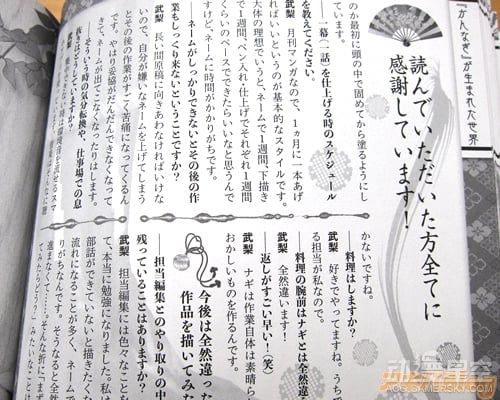 『かんなぎ』が生まれた世界
読んでいただいた方全てに
感謝しています!
のか最初に頭の中で固めてから塗るようにし
ています。
――一幕(一話)を仕上げる時のスケジュール
を教えてください。
武梨 月刊マンガなので、1ヵ月に一本あげ
ればいいというのが基本的なスタイルです。
大体の理想でいうと、ネームで1週間、下描き
で1週間、ペン入れ・仕上げでそれぞれ1週間
くらいのペースでできたらいいなと思うんで
すけど、ネームに時間がかかりがちです。
――ネームがしっかりできないとその後の作
業もしっくり来ないということですか?
武梨 長い間原稿に向きあわなければいけな
いので、自分が嫌いなネームを上げてしまう
とその後の作業がすごく苦痛になってくるん
です。やはり妥協がだんだんできなくなって
きて、ネームが
なくなったりはします。
――そういう時の気分転換や、仕事場での息
抜きは
武梨
かないですね。
――料理はしますか?
武梨 好きでやってますね。うちで
る担当が私なので。
――料理の腕前はナギとは全然違
武梨 全然違います!
――返しがすごい早い!(笑)
武梨 ナギは作業自体は素晴ら
おかしいものを作るんです。
今後は全然違った
作品を描いてみた
――担当編集とのやり取りの中
残っていることはありますか?
武梨 担当編集には色々なことを
て、本当に勉強になりました。私は
部話ができていないと描きたくな
流れになることが多く、ネームで
りがちなんです。そうなると全然
進まなくて……。そんな折に「まず
てみたらどう?」みた
動漫星空
ACG.GAMERSKY.COM